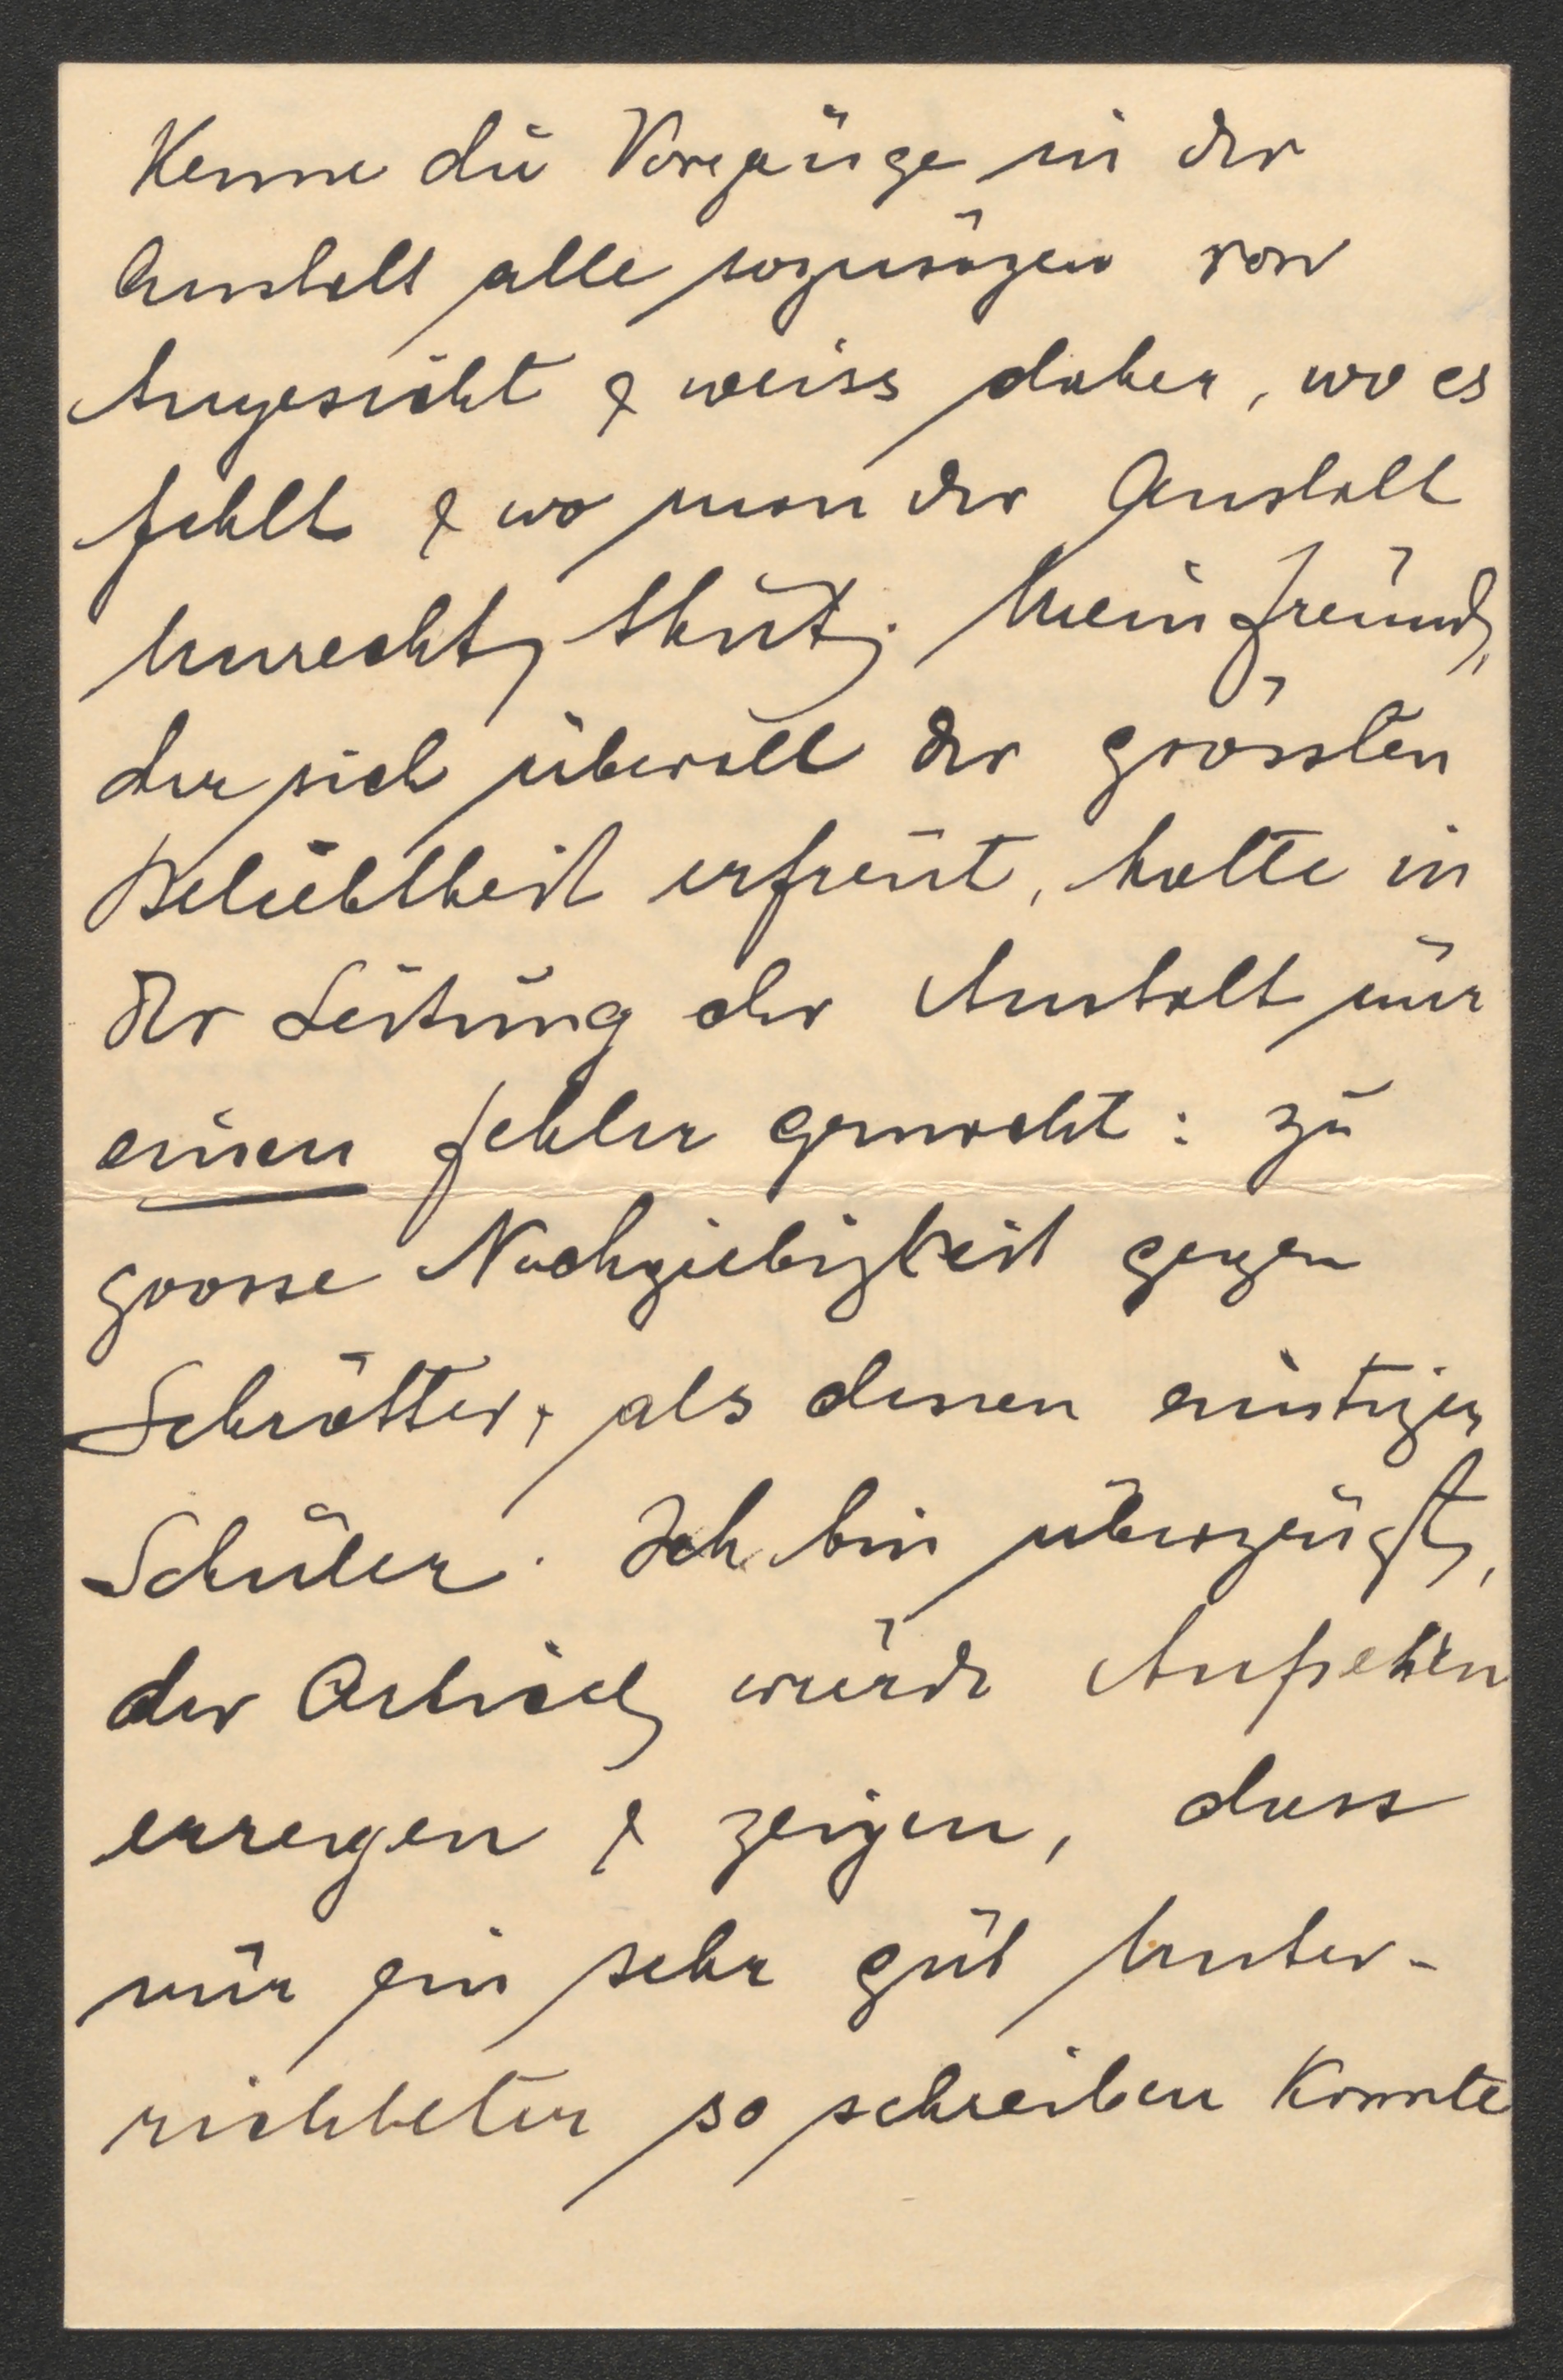 Kenne die Vorgänge in der
Anstalt alle sozusagen von
Angesicht & weiss daher, wo es
fehlt & wo man der Anstalt
Unrecht thut. Mein Freund,
der sich überall der grössten
Beliebtheit erfreut, hatte in
der Leitung der Anstalt nur
einen Fehler gemacht: zu
grosse Nachgiebigkeit gegen
Schrötter, als dessen einstiger
Schüler. Ich bin überzeugt,
der Artikel würde Aufsehen
erregen & zeigen, dass
nur ein sehr gut Unter-
richteter so schreiben konnte